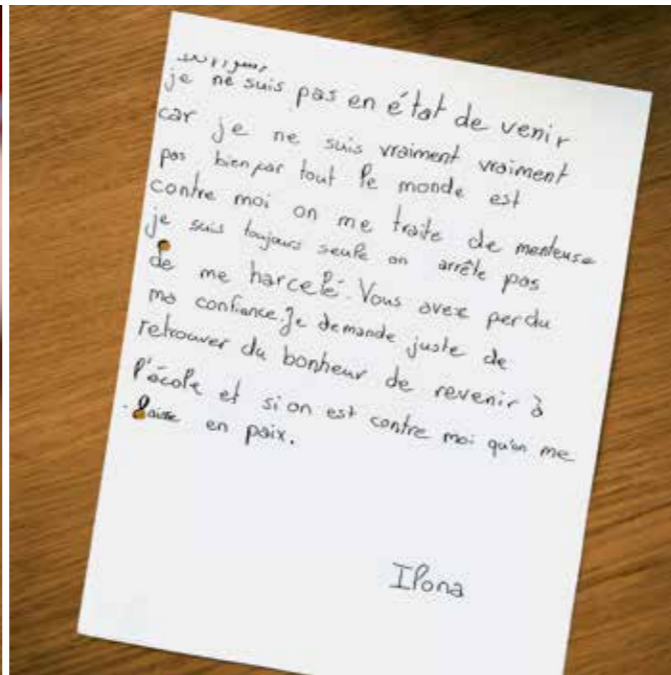 je ne suis pas en état de venir
car je ne suis vraiment vraiment
pas bien par tout le monde est
contre moi on me traite de menteuse
je suis toujours seule on arrête pas
de me harcelé. Vous avez perdu
ma confiance. Je demande juste de
retrouver du bonheur de revenir à
l'école et si on est contre moi qu'on me
laisse en paix.
Ilona